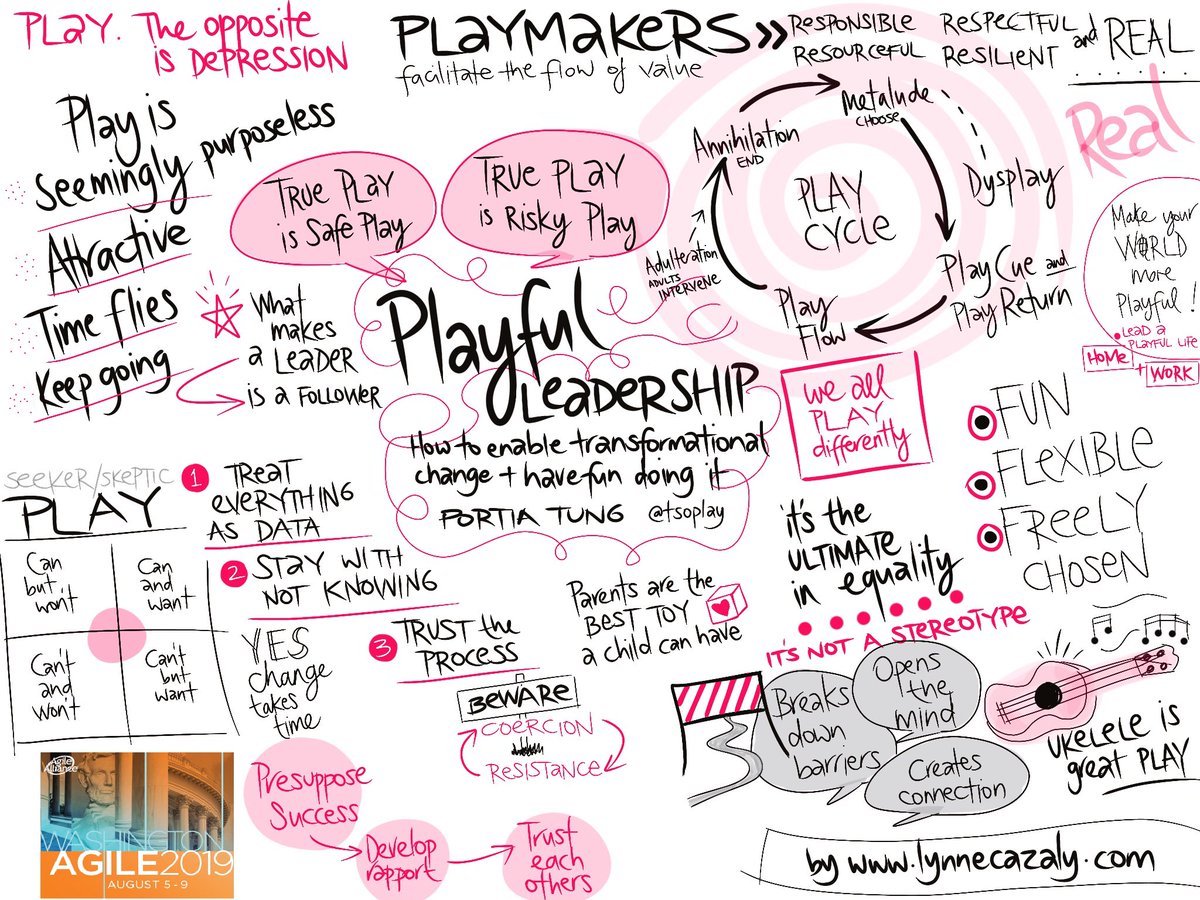 PLAY. The opposite
is DEPRESSION
PLAYMAKERS >>
facilitate the flow of value
RESPONSIBLE
RESOURCEFUL
RESPECTFUL
RESILIENT
and REAL
Real
Play is
Seemingly purposeless
Attractive
Time flies
Keep going
TRUE PLAY
is Safe Play
TRUE PLAY
is Risky Play
What
makes
a LEADER
is a FOLLOWER
Playful
LEADERSHIP
How to enable transformational
change + have fun doing it
PORTIA TUNG @tsoplay
PLAY
CYCLE
Metalude
CHOOSE
Dysplay
Play Cue and
Play Return
Play
Flow
Adulteration
ADULTS
INTERVENE
Annihilation
END
Make your
WORLD
more
Playful!
LEAD A
PLAYFUL LIFE
HOME
+ WORK
we all
PLAY
differently
FUN
FLEXIBLE
FREELY
CHOSEN
SEEKER/SKEPTIC
PLAY
Can
but
won't
Can
and
want
Can't
and
won't
Can't
but
want
1 TREAT
EVERYTHING
AS DATA
2 STAY WITH
NOT KNOWING
3 TRUST the
PROCESS
YES
change
takes
time
BEWARE
COERCION
RESISTANCE
Parents are the
BEST TOY
a child can have
it's the
ULTIMATE
in equality
IT'S NOT A STEREOTYPE
Breaks
down
barriers
Opens
the
mind
Creates
connection
UKELELE is
great PLAY
Presuppose
Success
Develop
rapport
Trust
each
others
Agile
Alliance
WASHINGTON
AGILE2019
AUGUST 5-9
by www.lynnecazaly.com